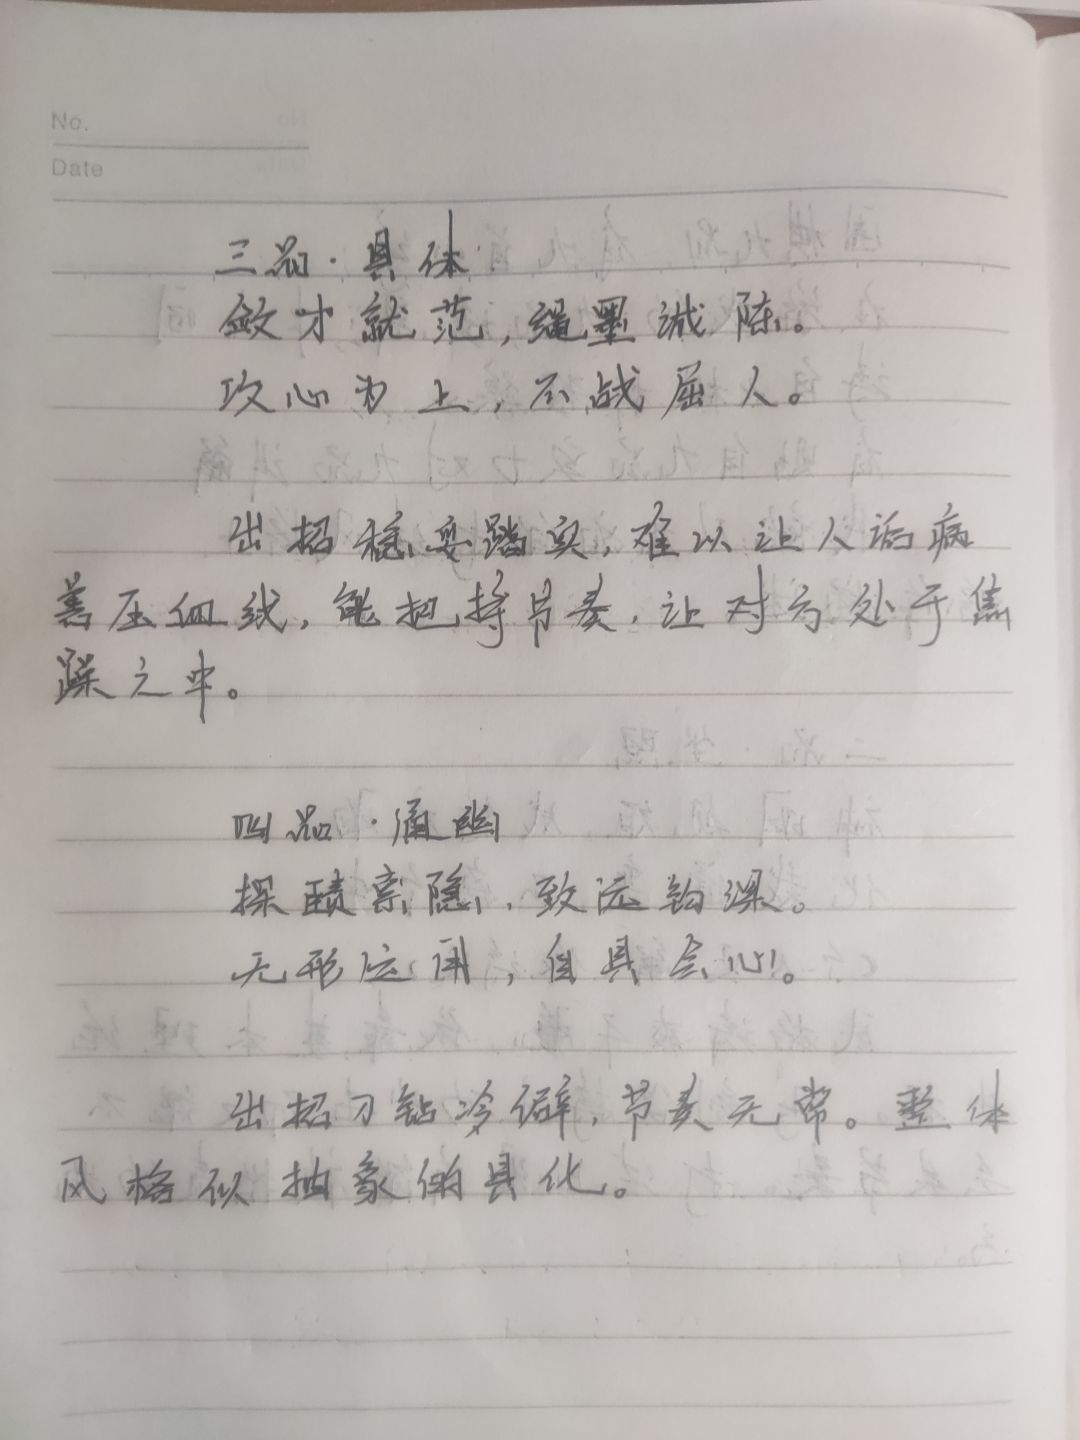 No.
Date
三品·具体
敛才就范,绳墨诚陈。
攻心为上,不战屈人。
出招稳妥踏实,难以让人诟病
善压血线,能把持节奏,让对方处于焦
躁之中。
四品·通幽
探赜索隐,致远钩深。
无形应用,自具会心。
出招刁钻冷僻,节奏无常。整体
风格似抽象的具化。